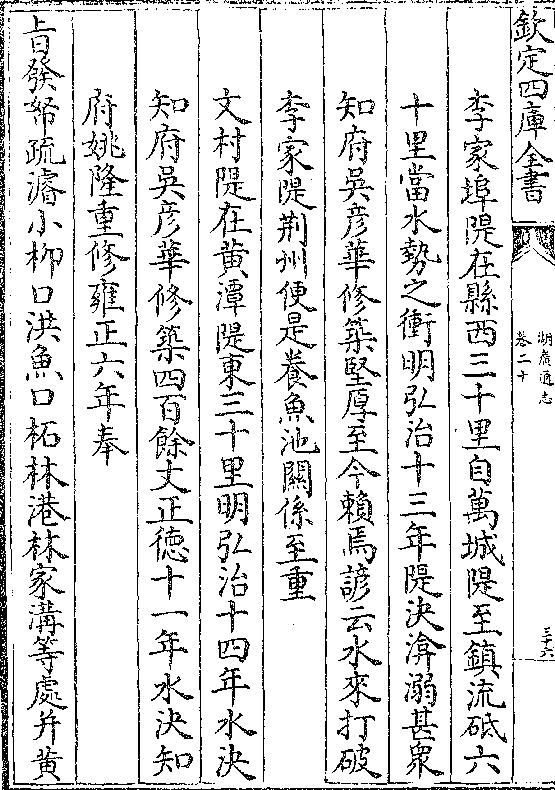 欽定四庫全書
湖廣通志
卷二十
三十六
李家埠隄在縣西三十里自萬城隄至鎮流砥六
十里當水勢之衝明弘治十三年隄決渰溺甚衆
知府吳彦華修築堅厚至今賴焉諺云水來打破
李家隄荆州便是養魚池關係至重
文村隄在黄潭隄東三十里明弘治十四年水決
知府吳彦華修築四百餘丈正徳十一年水決知
府姚隆重修雍正六年奉
㫖發帑疏濬小柳口洪魚口柘林港林家溝等處并黄